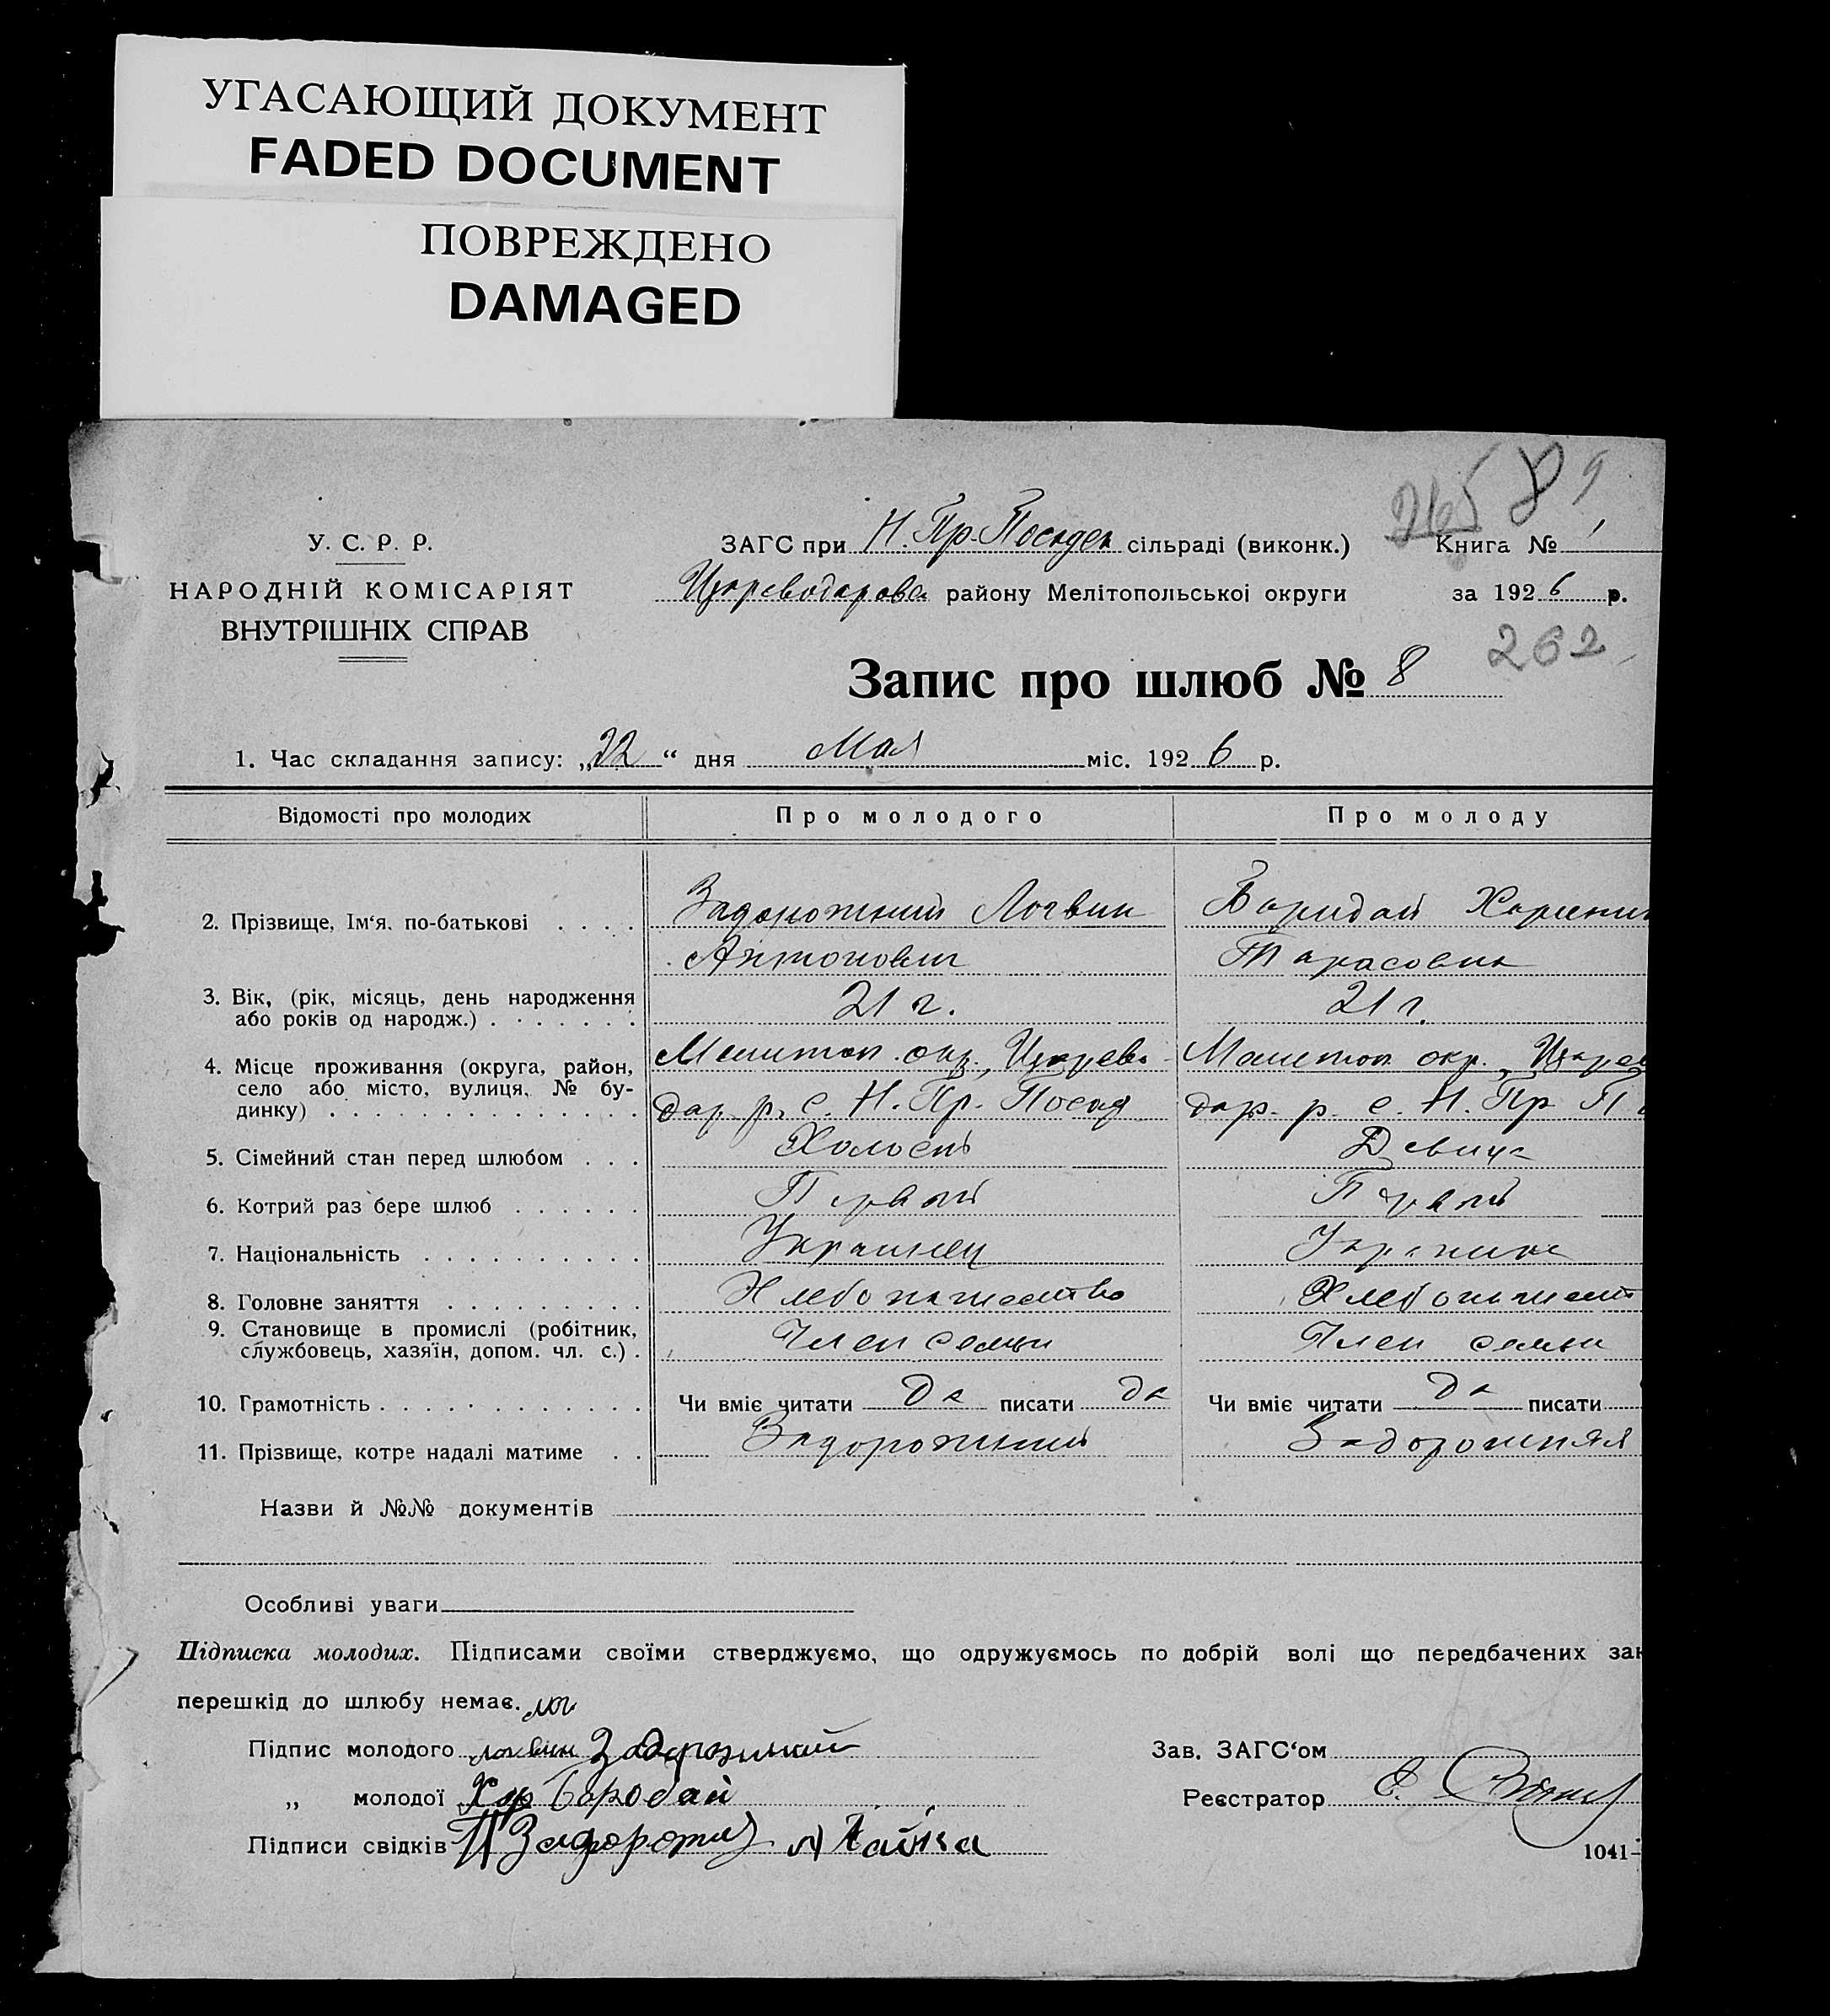 УГАСАЮЩИЙ ДОКУМЕНТ
FADED DOCUMENT
ПОВРЕЖДЕНО
DAMAGED
265 89
У. С. Р. Р.
НАРОДНІЙ КОМІСАРІЯТ
ВНУТРІШНІХ СПРАВ
ЗАГС при Н. Пр. Посадск сільраді (виконк.) Книга № 1
Цареводарова району Мелітопольської округи за 1926 р.
262
Запис про шлюб № 8
1. Час складання запису: „22“ дня Мая міс. 1926 р.
Відомості про молодих Про молодого Про молоду
2. Прізвище, Ім‘я, по-батькові . . . . Задорожний Логвин
Антонович Тарасовна
3. Вік, (рік, місяць, день народження
або років од народж.) . . . . . . . 21 г. 21 г.
4. Місце проживання (округа, район,
село або місто, вулиця, № бу-
динку) . . . . . . . . . . . . . .
Мелитоп. окр., Царево- Мелитоп окр., Царев
дар. р. с. Н. Пр. Посад дар. р. с. Н. Пр П
5. Сімейний стан перед шлюбом . . . Холост Девица
6. Котрий раз бере шлюб . . . . . . Первый Первый
7. Національність . . . . . . . . . . Украинец Украинка
8. Головне заняття . . . . . . . . . Хлебопашество Хлебопашест
9. Становище в промислі (робітник,
службовець, хазяїн, допом. чл. с.) . Член семьи Член семьи
10. Грамотність . . . . . . . . . . . . Чи вміє читати да писати да Чи вміє читати да писати
11. Прізвище, котре надалі матиме . . Задорожний Задорожняя
Назви й №№ документів
Особливі уваги
Підписка молодих. Підписами своїми стверджуємо, що одружуємось по добрій волі що передбачених зак
перешкід до шлюбу немає. лог
Підпис молодого логвин Задорожний Зав. ЗАГС‘ом
„ молодої Хар Бародай Реєстратор
Підписи свідків П Задорожн
1041-